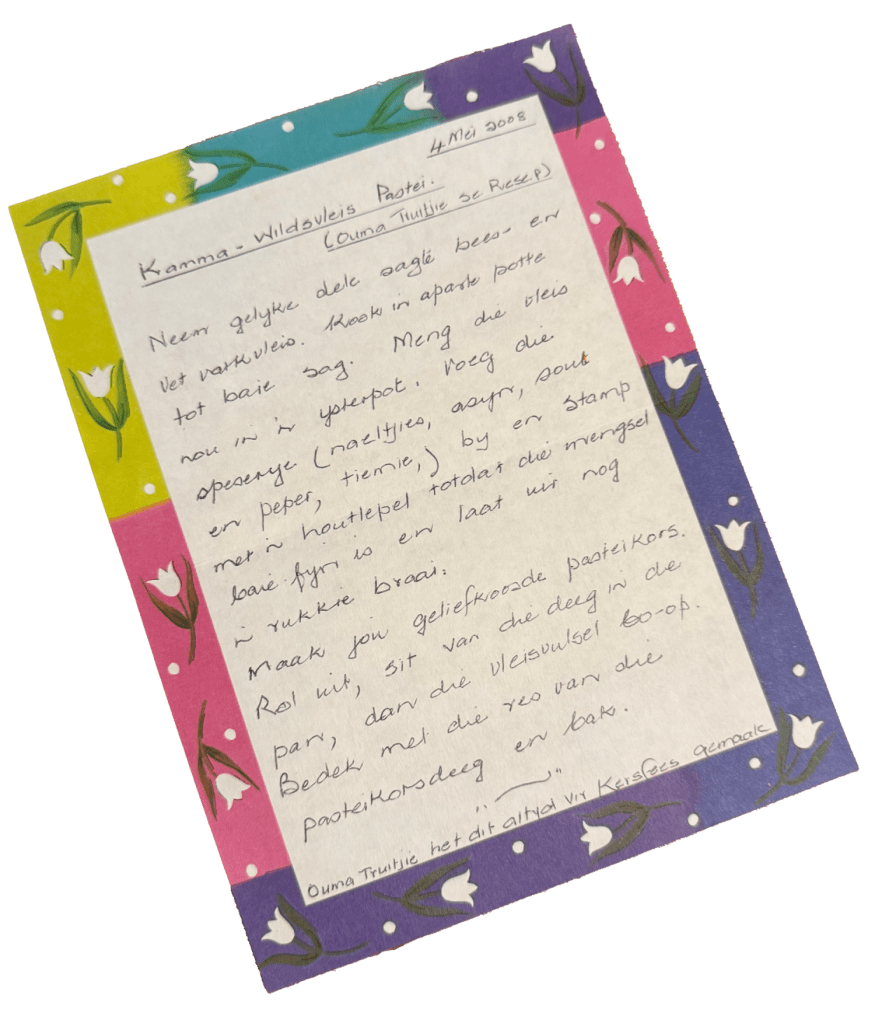 4 Mei 2008
Kamma - Wildsvleis Pastei.
(Ouma Truitjie se Resep)
Neem gelyke dele sagte bees- en
vet varkvleis. Kook in aparte potte
tot baie sag. Meng die vleis
nou in 'n ysterpot. Voeg die
speserye (naeltjies, asyn, sout
en peper, tiemie,) by en stamp
met 'n houtlepel totdat die mengsel
baie fyn is en laat uit nog
'n rukkie braai.
Maak jou geliefkoosde pasteikors.
Rol uit, sit van die deeg in die
pan, dan die vleisvulsel bo-op.
Bedek met die res van die
pasteikorsdeeg en bak.
Ouma Truitjie het dit altyd vir Kersfees gemaak